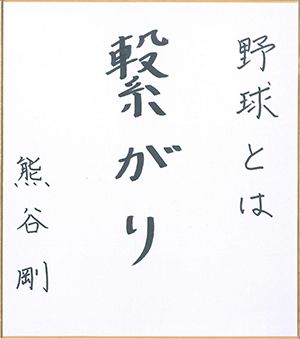 野球とは
繋がり
熊谷剛